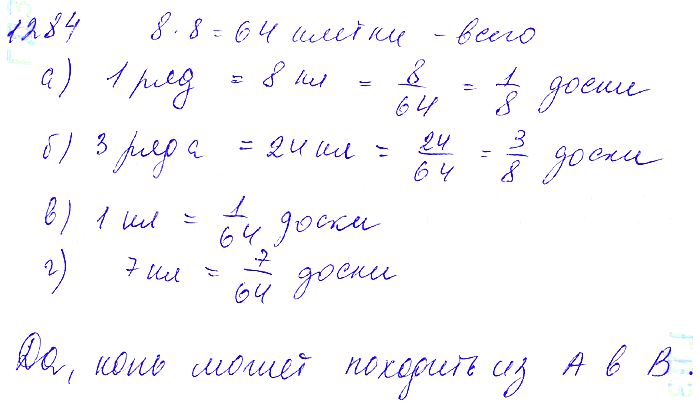 1284 8 · 8 = 64 клетки - всего
а) 1 ряд = 8 кл = 8/64 = 1/8 доски
б) 3 ряда = 24 кл = 24/64 = 3/8 доски
в) 1 кл = 1/64 доски
г) 7 кл = 7/64 доски
Да, конь может походить из А в В.